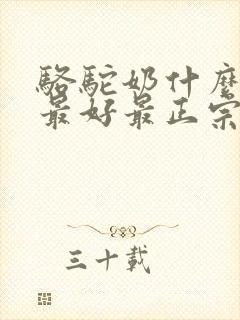 駱駝奶什麼
最好最正宗
三十載